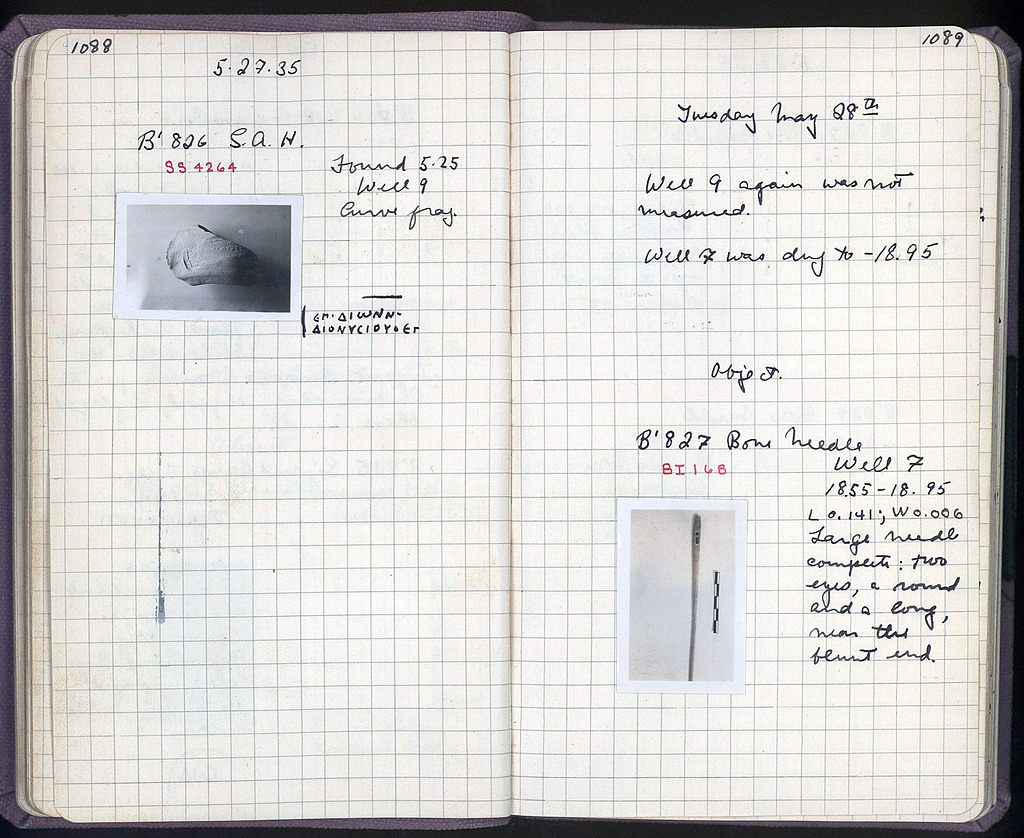 1088
5·27·35
B' 826 S.A.H.
SS 4264
Found 5·25
Well 9
Curve frag.
ΔΙΟΝΥϹΙΟΥ
1089
Tuesday May 28th
Well 9 again was not
measured.
Well 7 was dug to -18.95
Object.
B' 827 Bone Needle
BI 168
Well 7
18.55-18.95
L 0.141; W 0.006
Large needle
complete: two
eyes, a round
and a long,
near the
blunt end.